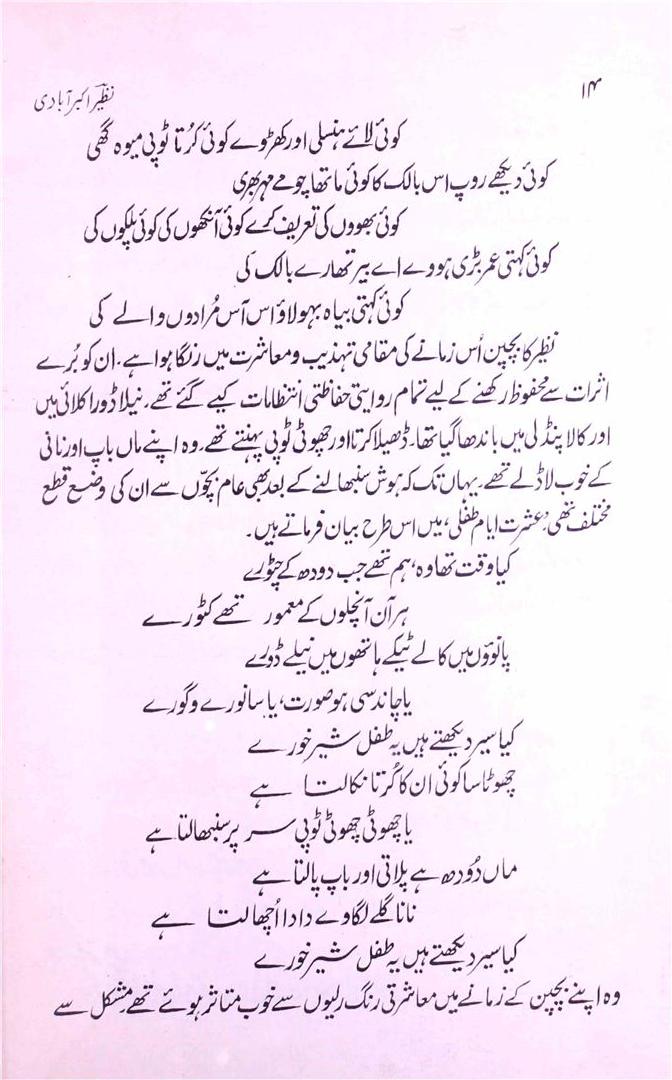 ۱۴
نظیر اکبر آبادی
کوئی لائے ہنسلی اور کھڑوے کوئی کُرتا ٹوپی میوہ گھی
کوئی دیکھے روپ اس بالک کا کوئی ماتھا چومے مہر بھری
کوئی بھووں کی تعریف کرے کوئی آنکھوں کی کوئی پلکوں کی
کوئی کہتی عمر بڑی ہووے اے بیر تمھارے بالک کی
کوئی کہتی بیاہ بہو لاؤ اس آس مُرادوں والے کی
نظیر کا بچپن اُس زمانے کی مقامی تہذیب و معاشرت میں رنگا ہوا ہے۔ ان کو بُرے
اثرات سے محفوظ رکھنے کے لیے تمام روایتی حفاظتی انتظامات کیے گئے تھے۔ نیلا ڈورا کلائی میں
اور کالا پنڈلی میں باندھا گیا تھا۔ ڈھیلا کرتا اور چھوٹی ٹوپی پہنتے تھے۔ وہ اپنے ماں باپ اور نانی
کے خوب لاڈلے تھے۔ یہاں تک کہ ہوش سنبھالنے کے بعد بھی عام بچّوں سے ان کی وضع قطع
مختلف تھی۔ ’عشرت ایام طفلی‘ میں اس طرح بیان فرماتے ہیں۔
کیا وقت تھا وہ، ہم تھے جب دودھ کے چٹورے
ہر آن آنچلوں کے معمور تھے کٹورے
پانوؤں میں کالے ٹیکے ہاتھوں میں نیلے ڈورے
یا چاند سی ہو صورت، یا سانورے و گورے
کیا سیر دیکھتے ہیں یہ طفل شیر خورے
چھوٹا سا کوئی ان کا کُرتا نکالتا ہے
یا چھوٹی چھوٹی ٹوپی سر پر سنبھالتا ہے
ماں دُودھ ہے پلاتی اور باپ پالتا ہے
نانا گلے لگاوے دادا اُچھالتا ہے
کیا سیر دیکھتے ہیں یہ طفل شیر خورے
وہ اپنے بچپن کے زمانے میں معاشرتی رنگ رلیوں سے خوب متاثر ہوئے تھے۔ مشکل سے